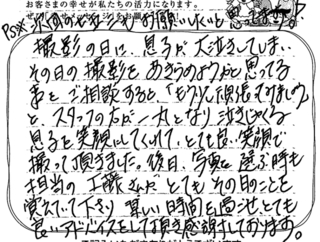 お客さまの幸せが私たちの活力になります。
お願いしたいと思ってます!
撮影の日に、息子が大泣きしてしまい
その日の撮影をあきらめようかと思ってる
とご相談すると、「もう少し頑張ってみましょう」
と、スタッフの方が一丸となり泣きじゃくる
息子を笑顔にしてくれて、とても良い笑顔で
撮って頂きました。後日、写真を選ぶ時も
担当の工藤さんがとてもその日のことを
覚えていて下さり、楽しい時間を過ごせ、とても
良いアドバイスをして頂き感謝しております。